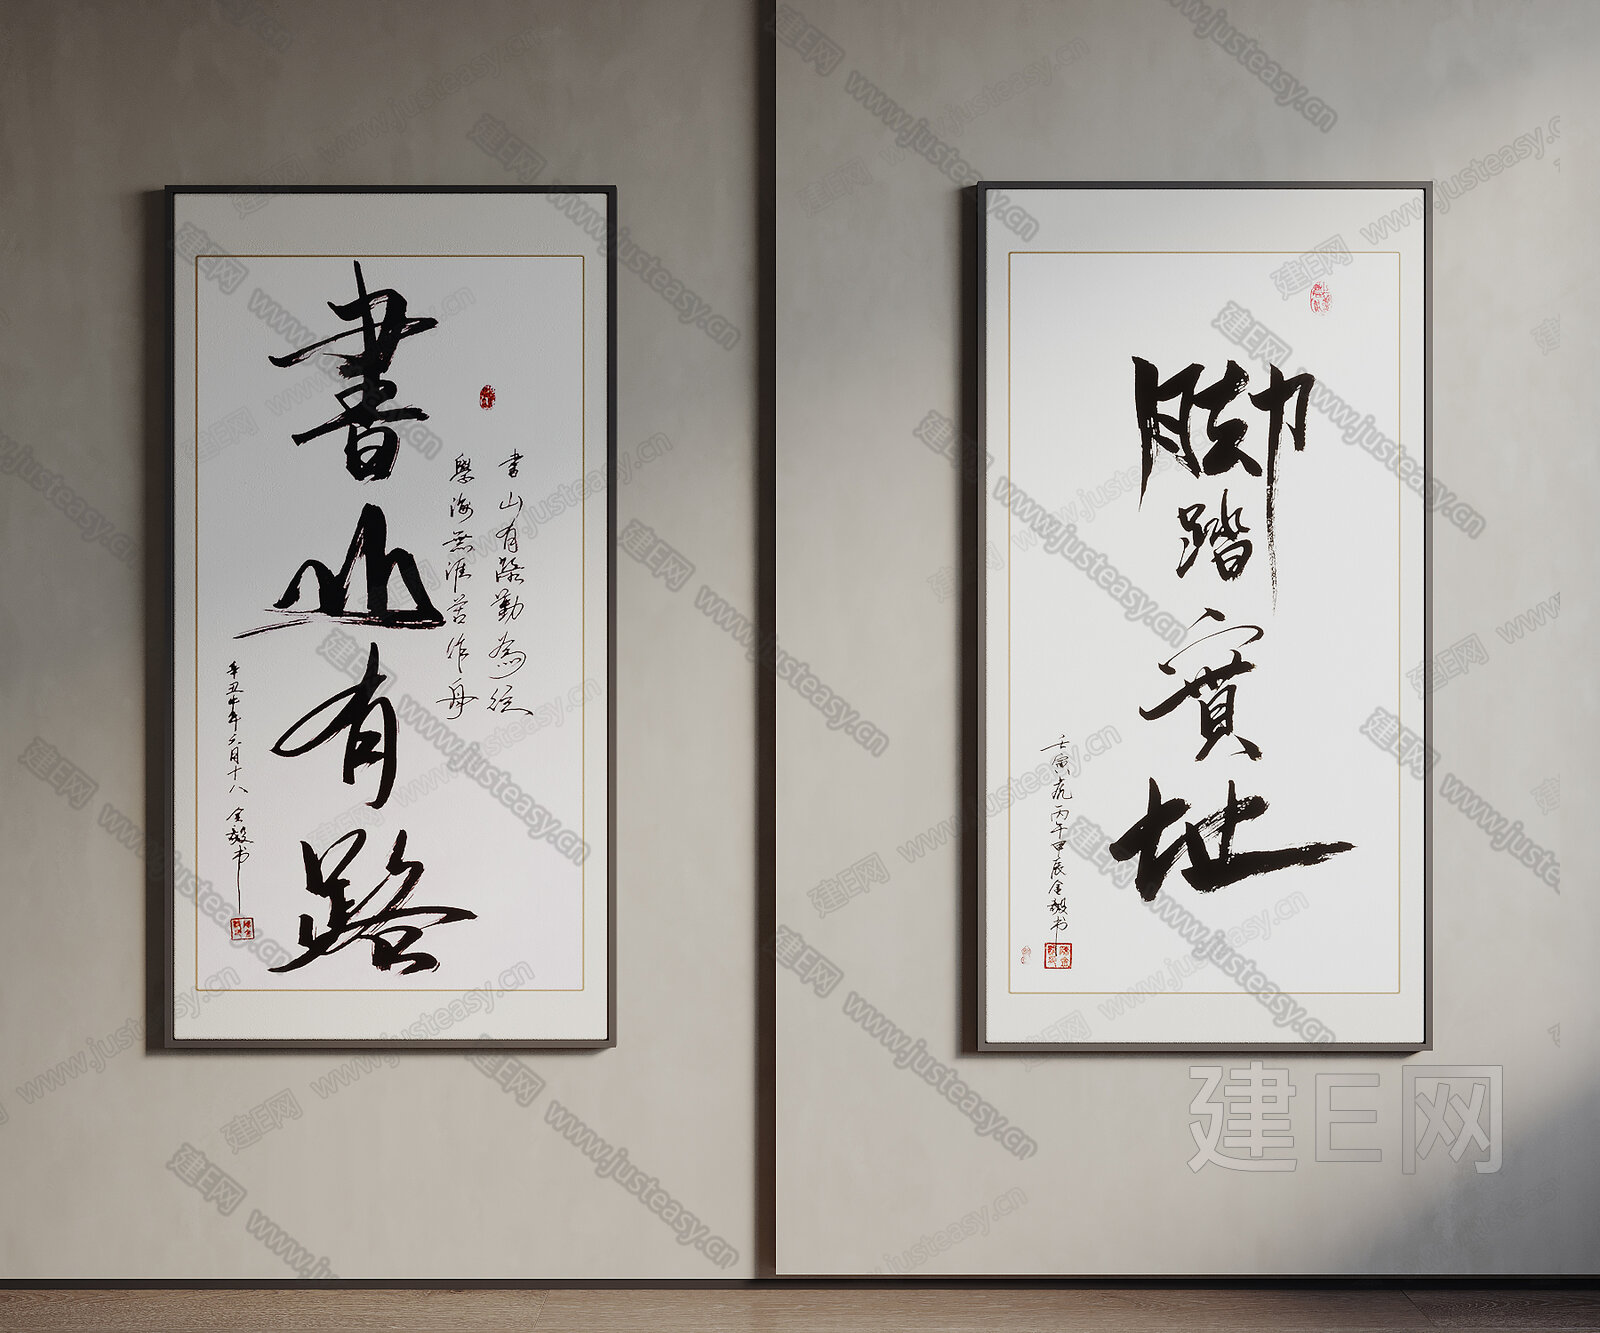 書山有路
书山有路勤为径
學海無涯苦作舟
辛丑牛年六月十八 金毅书
脚踏實地
壬寅虎丙午甲辰金毅书
建E网
www.justeasy.cn